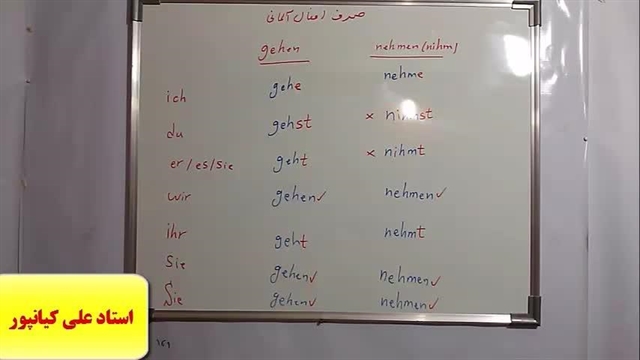 صرف افعال آلمانی
gehen nehmen (nihm)
ich gehe nehme
du gehst × nihmst
er/es/sie geht × nihmt
wir gehen✓ nehmen✓
ihr geht nehmt
sie gehen✓ nehmen✓
Sie gehen✓ nehmen✓
استاد علی کیانپور